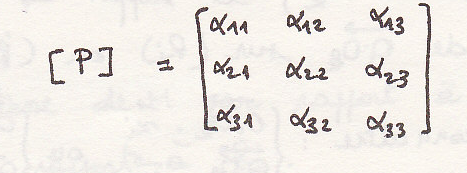 α11 α12 α13
[P] = α21 α22 α23
α31 α32 α33